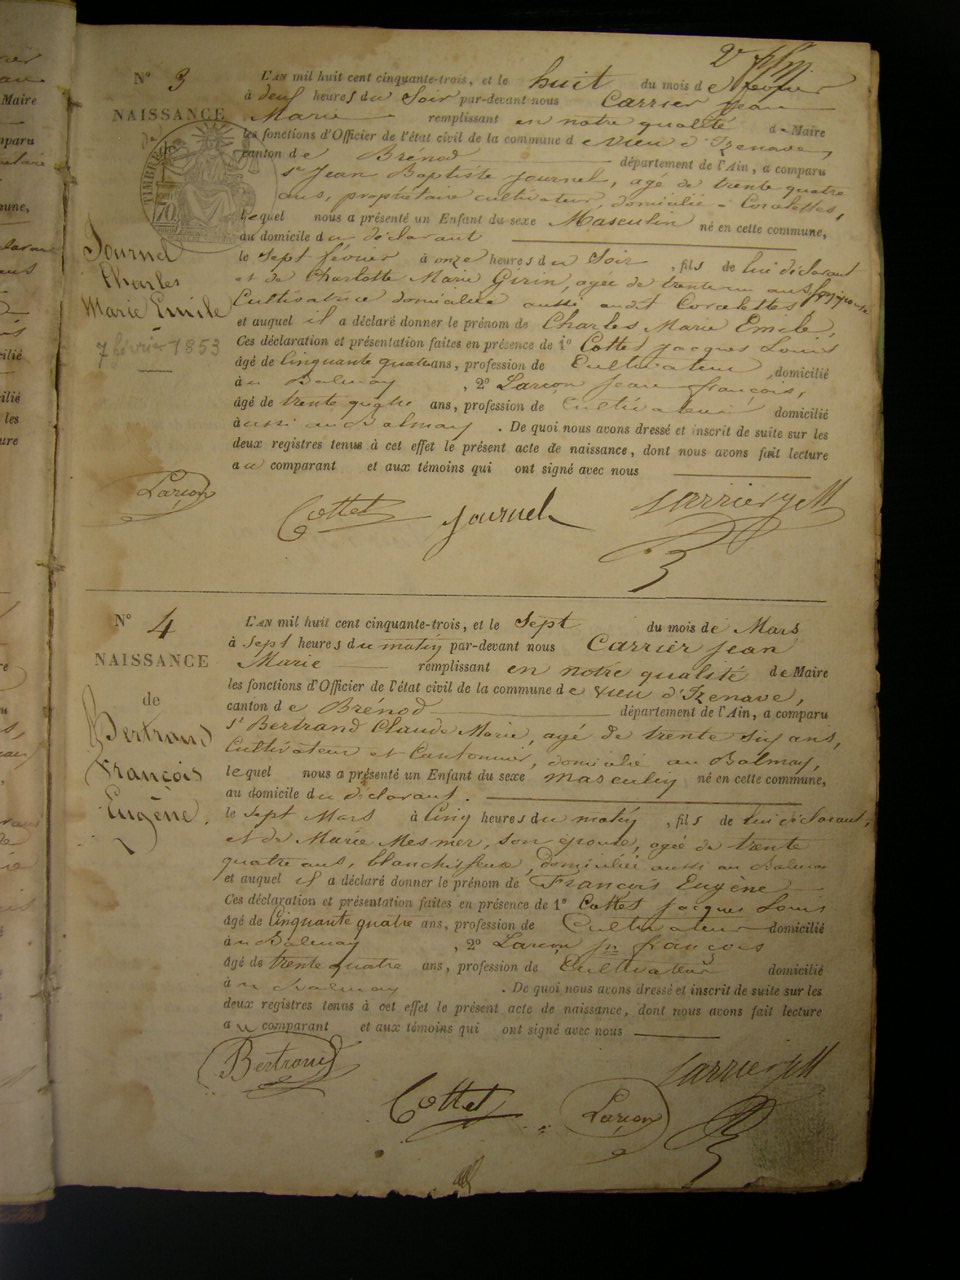 N° 3
NAISSANCE
de
TIMBRE
70
Journel
Charles
Marie Emile
7 février 1853
L'AN mil huit cent cinquante-trois, et le huit du mois de Février
à deux heures du Soir par-devant nous Carrier Jean
Marie remplissant en notre qualité de Maire
les fonctions d'Officier de l'état civil de la commune de Vieu d'Izenave,
canton de Brénod département de l'Ain, a comparu
sr Jean Baptiste Journel, agé de trente quatre
ans, propriétaire cultivateur, domicilié à Corcelettes,
lequel nous a présenté un Enfant du sexe Masculin né en cette commune,
au domicile du déclarant
le sept février à onze heures du Soir, fils de lui déclarant
et de Charlotte Marie Girin, agée de trente un ans, son épouse
Cultivatrice domiciliée aussi audit Corcelettes,
et auquel il a déclaré donner le prénom de Charles Marie Emile,
Ces déclaration et présentation faites en présence de 1° Cottet Jacques Louis
âgé de Cinquante quatre ans, profession de Cultivateur domicilié
à u Balmay, 2° Larçon Jean françois,
âgé de trente quatre ans, profession de Cultivateur domicilié
à ussi au Balmay. De quoi nous avons dressé et inscrit de suite sur les
deux registres tenus à cet effet le présent acte de naissance, dont nous avons fait lecture
au comparant et aux témoins qui ont signé avec nous
Larçon
Cottet Journel Carrier J M
N° 4
NAISSANCE
de
Bertrand
François
Eugène.
L'AN mil huit cent cinquante-trois, et le Sept du mois de Mars
à Sept heures du matin par-devant nous Carrier Jean
Marie remplissant en notre qualité de Maire
les fonctions d'Officier de l'état civil de la commune de Vieu d'Izenave,
canton de Brénod département de l'Ain, a comparu
sr Bertrand Claude Marie, agé de trente six ans,
Cultivateur et Cantonnier, domicilié au Balmay,
lequel nous a présenté un Enfant du sexe masculin né en cette commune,
au domicile du déclarant.
le sept Mars à Cinq heures du matin, fils de lui déclarant,
et de Marie Mesmer, son épouse, agée de trente
quatre ans, blanchisseuse, domiciliée aussi au Balmay
et auquel il a déclaré donner le prénom de François Eugène
Ces déclaration et présentation faites en présence de 1° Cottet Jacques Louis
âgé de Cinquante quatre ans, profession de Cultivateur domicilié
à u Balmay, 2° Larçon jn françois
âgé de trente quatre ans, profession de Cultivateur domicilié
à u Balmay. De quoi nous avons dressé et inscrit de suite sur les
deux registres tenus à cet effet le présent acte de naissance, dont nous avons fait lecture
au comparant et aux témoins qui ont signé avec nous
Bertrand Carrier J M
Cottet Larçon